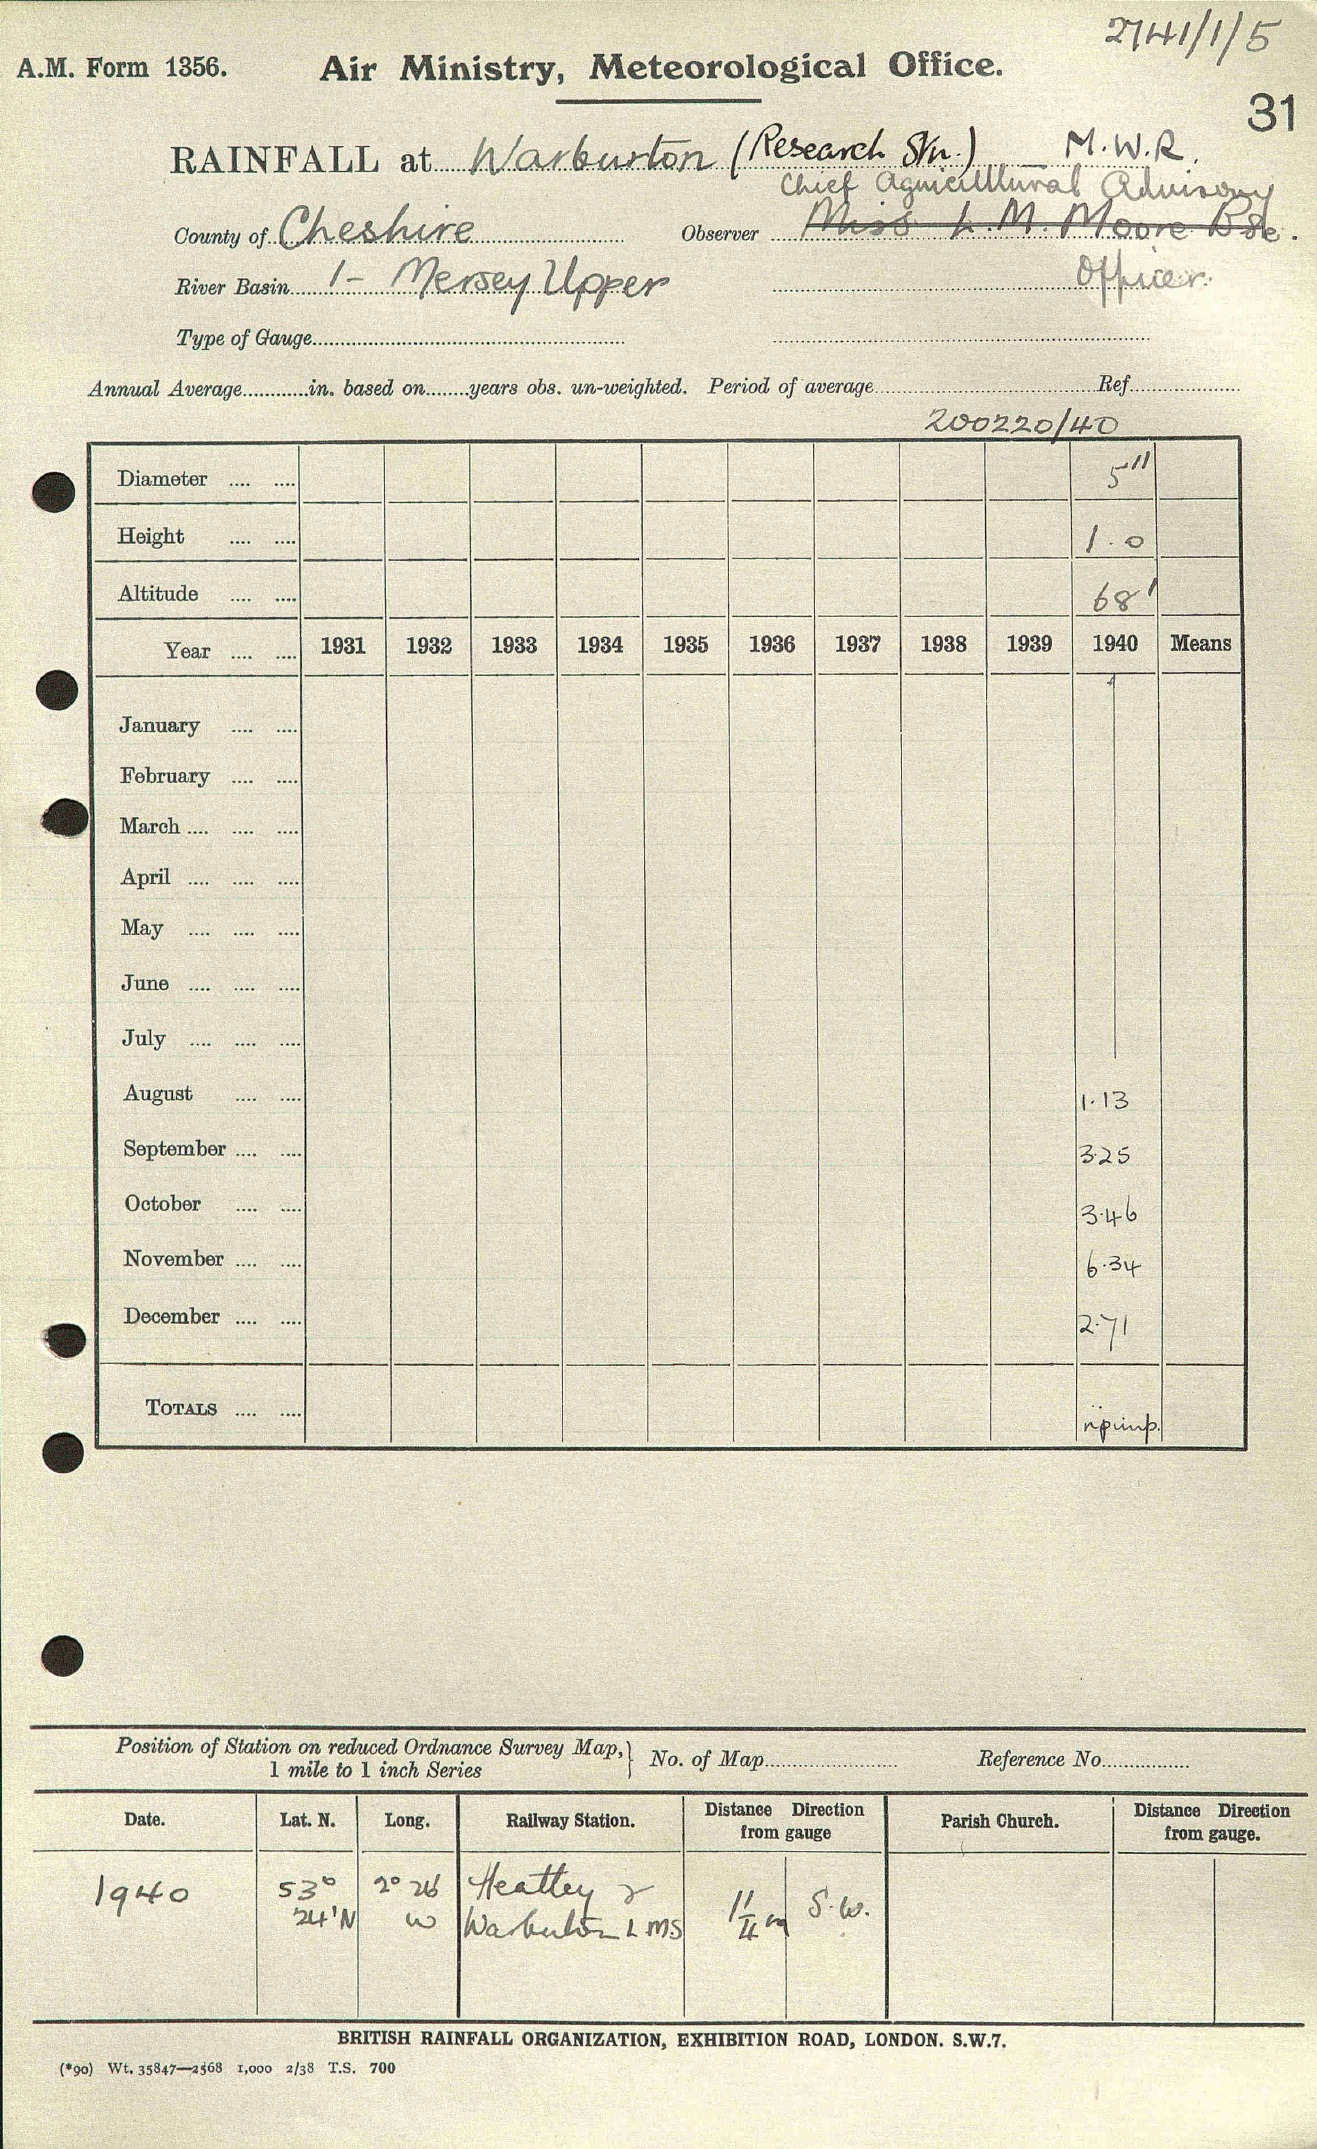 2741/1/5
A.M. Form 1356. Air Ministry, Meteorological Office.
31
RAINFALL at Warburton (Research Stn.) M.W.R.
Chief Agricultural Advisory
County of Cheshire Observer Miss L. M. Moore BSc.
River Basin 1- Mersey Upper Officer.
Type of Gauge
Annual Average in. based on years obs. un-weighted. Period of average Ref
200220/40
Diameter 5"
Height 1.0
Altitude 68'
Year 1931 1932 1933 1934 1935 1936 1937 1938 1939 1940 Means
January
February
March
April
May
June
July
August 1.13
September 3.25
October 3.46
November 6.34
December 2.71
TOTALS
Position of Station on reduced Ordnance Survey Map, 1 mile to 1 inch Series } No. of Map Reference No.
Date. Lat. N. Long. Railway Station. Distance from gauge Direction Parish Church. Distance from gauge. Direction
1940 53° 2° 26 Heatley &
24'N W Warburton L.M.S 1 1/4 m S.W.
BRITISH RAINFALL ORGANIZATION, EXHIBITION ROAD, LONDON. S.W.7.
(*90) Wt. 35847—2568 1,000 2/38 T.S. 700